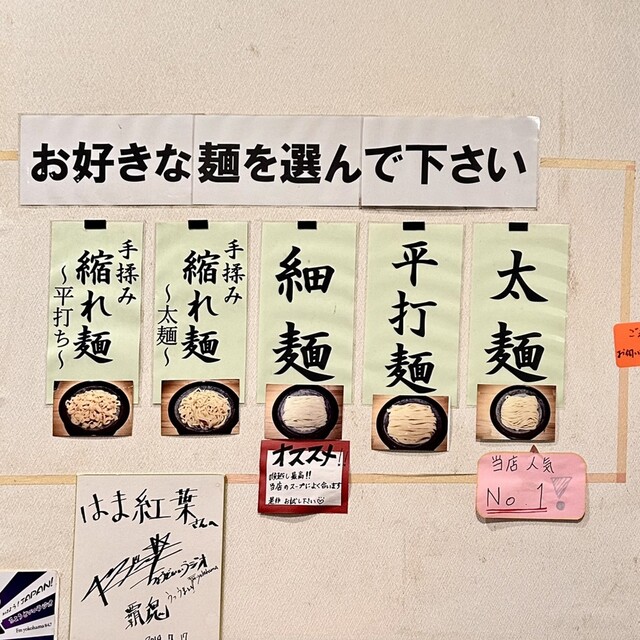 お好きな麺を選んで下さい
太麺
平打麺
細麺
手揉み
縮れ麺
〜太麺〜
手揉み
縮れ麺
〜平打ち〜
オススメ!
喉越し最高!!
当店のスープによく合います
是非 お試し下さい
当店人気
No 1
はま紅葉さんへ
覇魂
JAPAN!